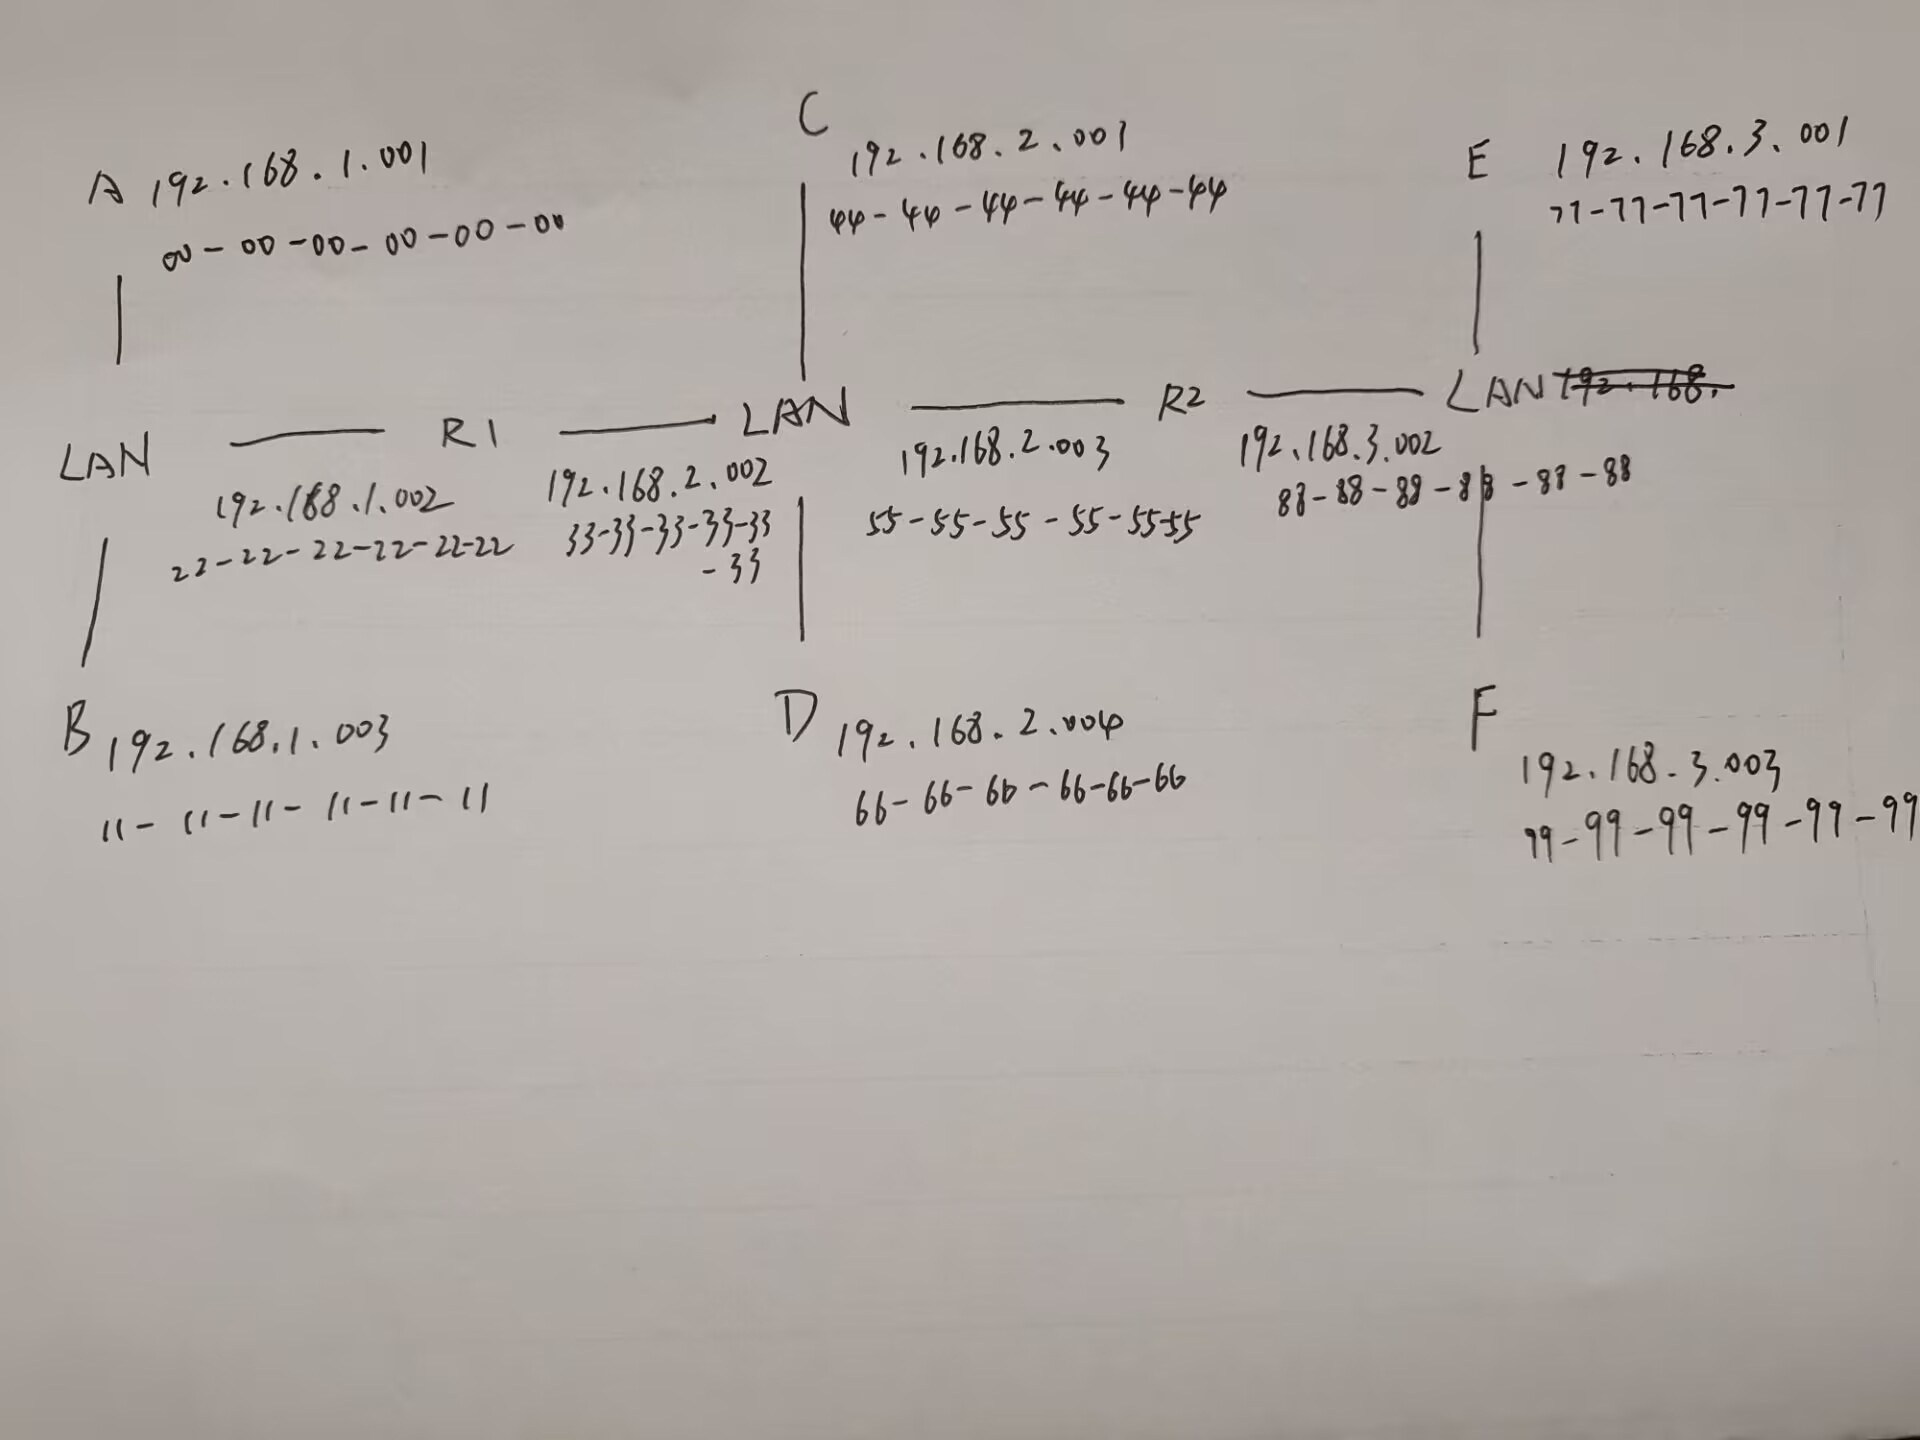 A 192.168.1.001
00-00-00-00-00-00
C
192.168.2.001
44-44-44-44-44-44
E 192.168.3.001
77-77-77-77-77-77
LAN
R1
LAN
R2
LAN 192.168.
192.168.1.002
22-22-22-22-22-22
192.168.2.002
33-33-33-33-33
-33
192.168.2.003
55-55-55-55-55-55
192.168.3.002
88-88-88-88-88-88
B 192.168.1.003
11-11-11-11-11-11
D 192.168.2.004
66-66-66-66-66-66
F
192.168.3.003
99-99-99-99-99-99